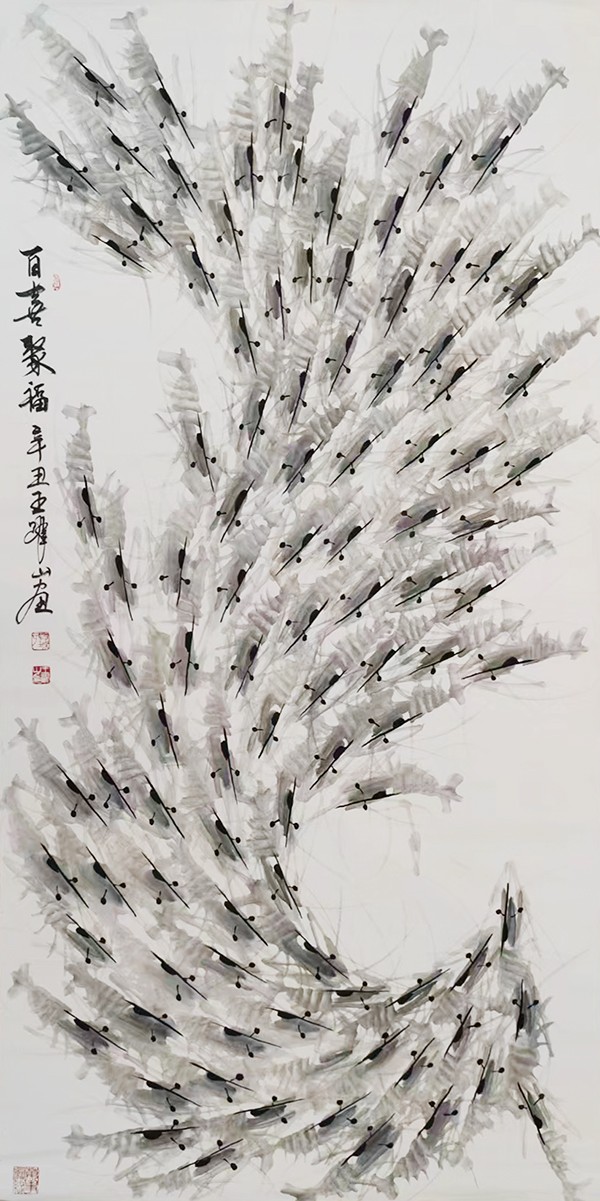 百喜聚福 辛丑王山画